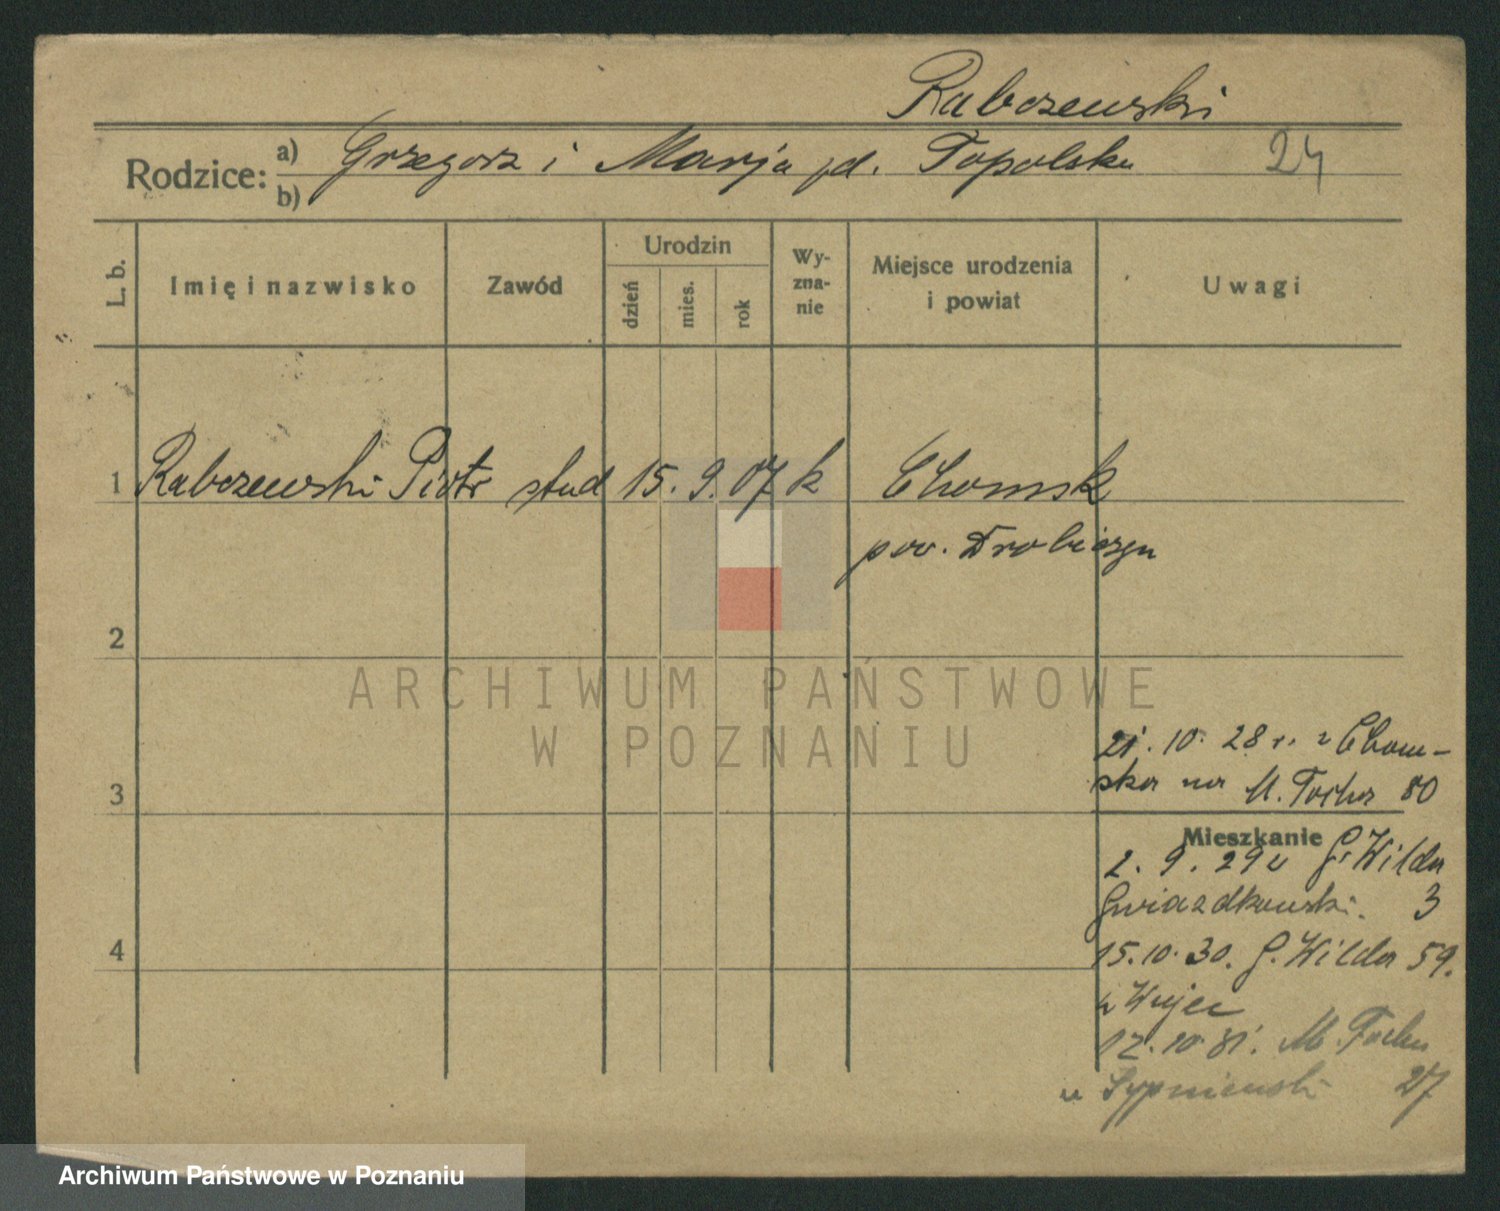 Rabczewski
Rodzice: a) Grzegorz i Marja zd. Topolska 24
b)
L. b. Imię i nazwisko Zawód Urodzin dzień mies. rok Wy-zna-nie Miejsce urodzenia i powiat Uwagi
1 Rabczewski Piotr stud 15. 9. 07 k Chomsk
pow. Drobiczyn
2
ARCHIWUM PAŃSTWOWE
W POZNANIU
21. 10. 28 r. z Chom-
ska na M. Focha 80
3
Mieszkanie
2. 9. 29 u G. Wilda
Gwiazdkowski. 3
4
15.10.30. G. Wilda 59.
u Wujec
12.10.31. M. Focha
u Sypniewski 27
Archiwum Państwowe w Poznaniu